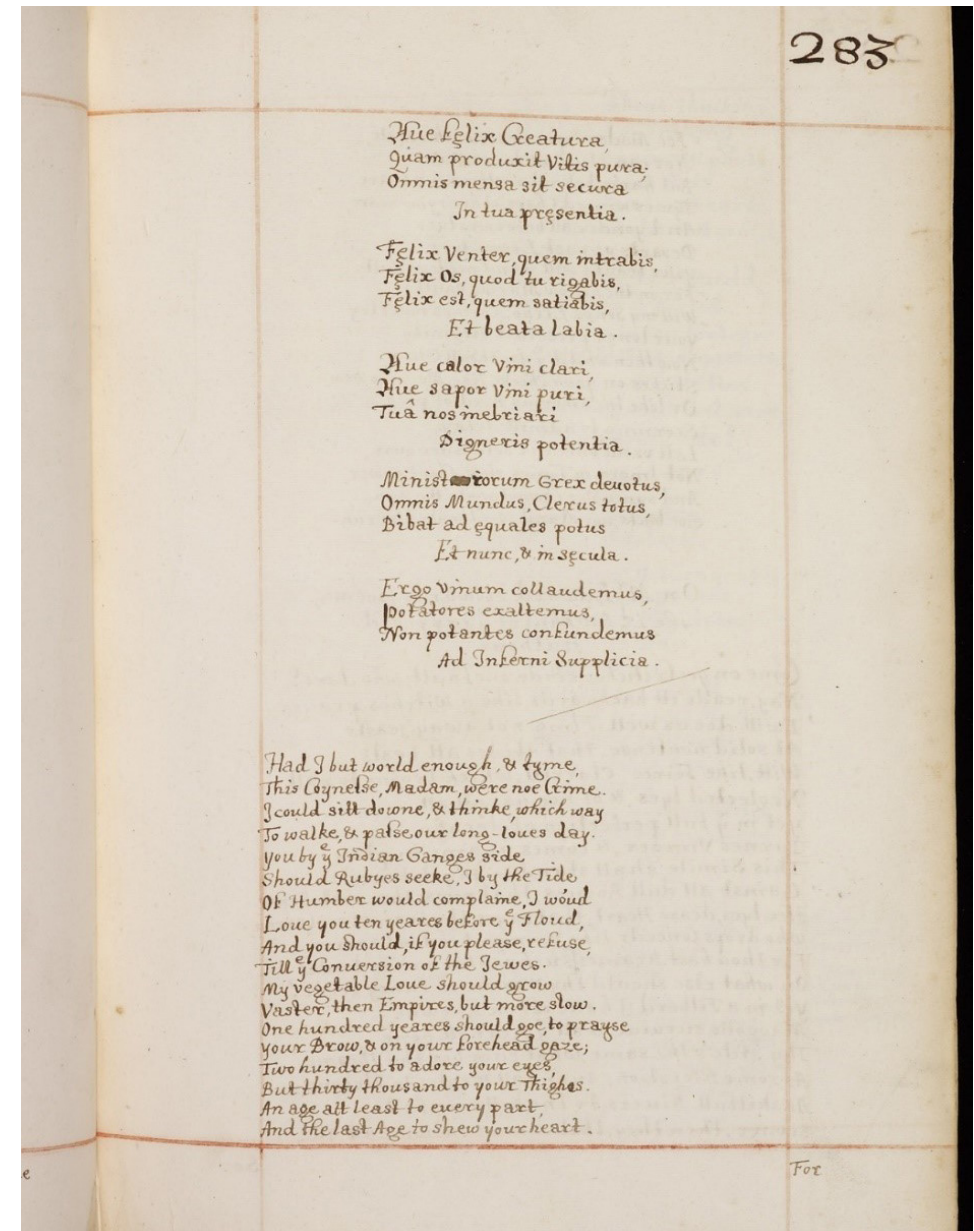 283
Aue fęlix Creatura,
Quam produxit Vitis pura;
Omnis mensa sit secura
In tua pręsentia.
Fęlix Venter, quem intrabis,
Fęlix Os, quod tu rigabis,
Fęlix est, quem satiabis,
Et beata labia.
Aue calor Vini clari,
Aue sapor Vini puri,
Tuâ nos inebriari
Digneris potentia.
Ministrorum Grex deuotus,
Omnis Mundus, Clerus totus,
Bibat ad ęquales potus
Et nunc, & in sęcula.
Ergo Vinum collaudemus,
Potatores exaltemus,
Non potantes confundemus
Ad Inferni Supplicia.
Had I but world enough, & tyme,
This Coynesse, Madam, were noe Crime.
I could sitt downe, & thinke, which way
To walke, & passe our long-loues day.
You by yͤ Indian Ganges side
Should Rubyes seeke, I by the Tide
Of Humber would complaine, I wou'd
Loue you ten yeares before yͤ Floud,
And you should, if you please, refuse,
Till yͤ Conuersion of the Jewes.
My vegetable Loue should grow
Vaster, then Empires, but more slow.
One hundred yeares should goe, to prayse
your Brow, & on your forehead gaze;
Two hundred to adore your eyes,
But thirty thousand to your Thighes.
An age att least to euery part,
And the last Age to shew your heart.
For